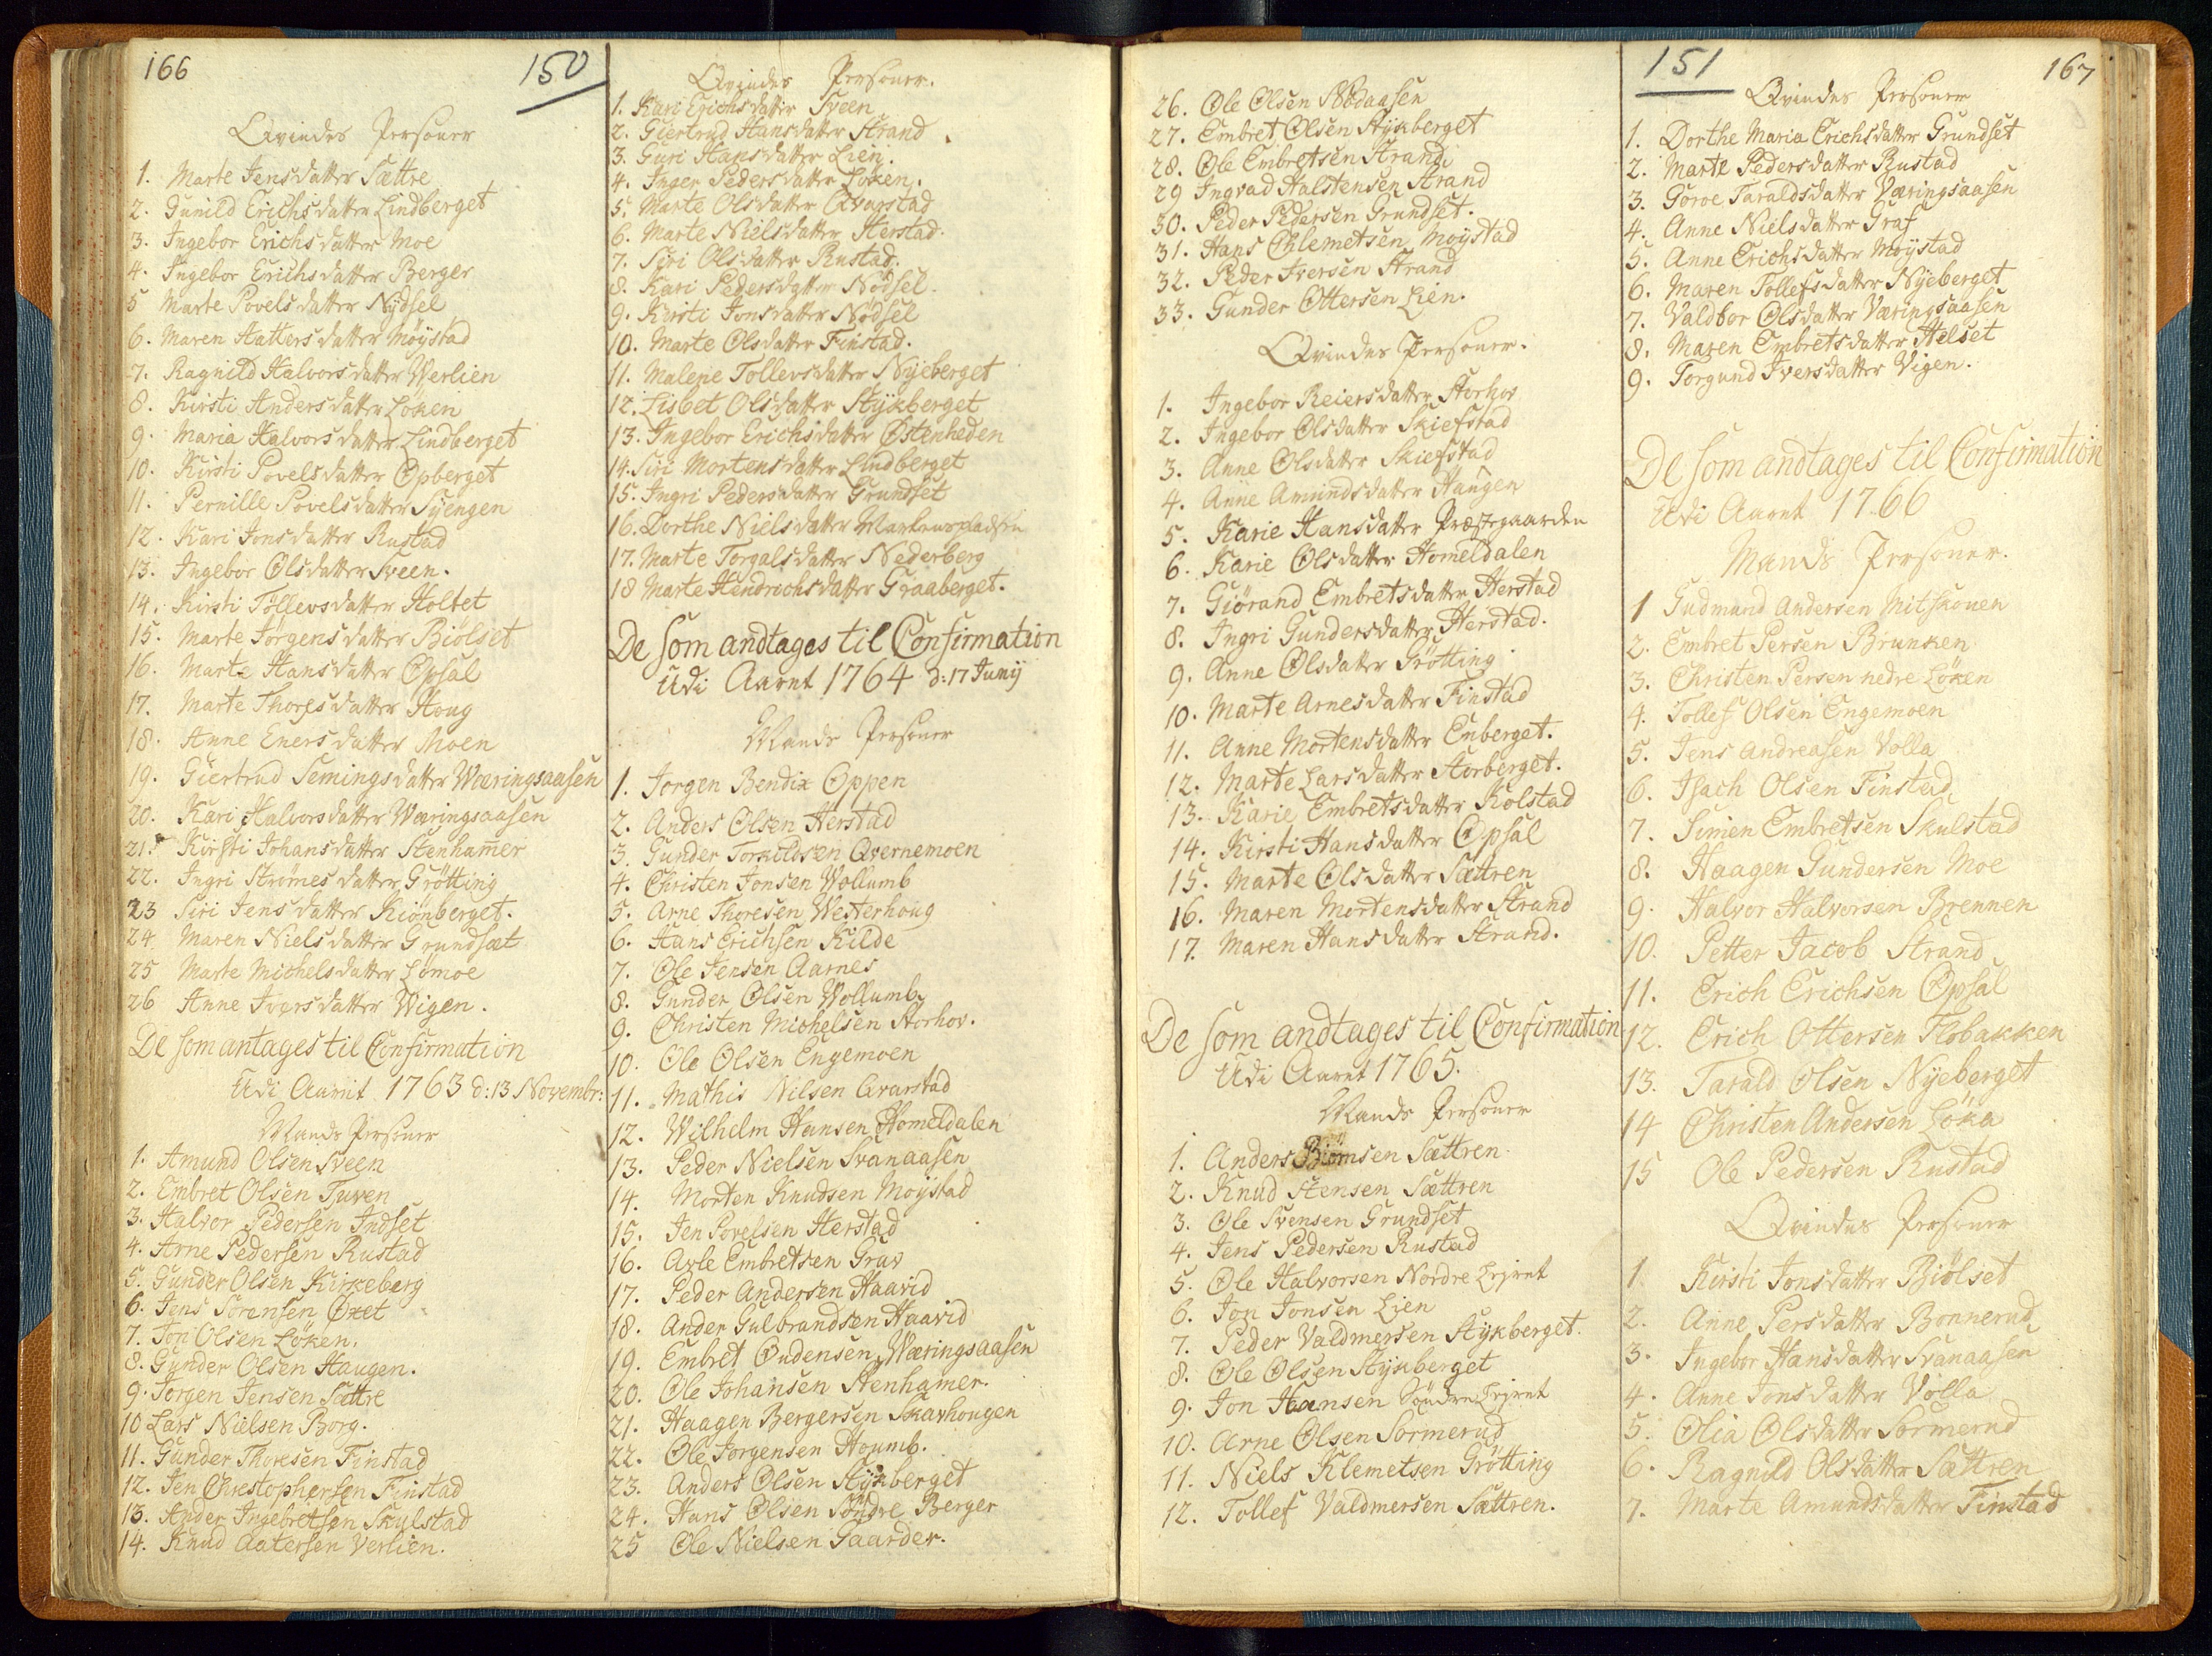 166
150
Qvindes Personer
1. Marte Jensdatter Sættre
2. Gunild Erichsdatter Lindberget
3. Ingebor Erichsdatter Moe
4. Ingebor Erichsdatter Berger
5 Marte Povelsdatter Nydsel
6. Maren Hattersdatter Möystad
7. Ragnild Halvorsdatter Werlien
8. Kirsti Andersdatter Löken
9. Maria Halvorsdatter Lindberget
10. Kirsti Povelsdatter Opberget
11. Pernille Povelsdatter Syengen
12. Kari Jonsdatter Rustad
13. Ingebor Olsdatter Sveen.
14. Kirsti Töllevsdatter Holtet
15. Marte Jörgensdatter Biölset
16. Marte Hansdatter Opsal
17. Marte Thoresdatter Houg
18. Anne Enersdatter Moen
19. Giertrud Semingsdatter Wæringsaasen
20. Kari Halvorsdatter Wæringsaasen
21. Kirsti Johansdatter Stenhammer
22. Ingri Strömesdatter Grötting
23 Siri Jensdatter Kiönberget.
24. Maren Nielsdatter Grundsæt
25 Marte Michelsdatter Lömoe
26 Anne Iversdatter Wigen.
De som antages til Confirmation
Udi Aarnt 1763 d: 13 Novembr:
Mands Personer
1. Amund Olsen Sveen
2. Embret Olsen Tuven
3. Halvor Pedersen Indset
4. Arne Pedersen Rustad
5. Gunder Olsen Kirkeberg
6. Jens Sörensen Oxet
7. Jon Olsen Löken.
8. Gunder Olsen Haugen.
9. Jorgen Jensen Sættre
10 Lars Nielsen Borg.
11. Gunder Thoresen Finstad
12. Jen Chrestophersen Finstad
13. Ander Ingebretsen Skulstad
14. Knud Aatersen Verlien.
Qvindes Personer.
1. Kari Erichsdatter Sveen
2. Giertrud Hansdatter Strand.
3. Guri Hansdatter Lien.
4. Inger Pedersdatter Löken.
5. Marte Olsdatter Qvarstad
6. Marte Nielsdatter Herstad.
7. Siri Olsdatter Rustad.
8. Kari Pedersdatter Nödsel.
9. Kirsti Jonsdatter Nödsel
10. Marte Olsdatter Finstad.
11. Malene Tollevsdatter Nyeberget
12. Lisbet Olsdatter Stykberget
13. Ingebor Erichsdatter Östenheden
14. Siri Mortensdatter Lindberget
15. Ingri Pedersdatter Grundset
16. Dorthe Nielsdatter Markenspladsen
17. Marte Torgalsdatter Nederberg
18 Marte Hendrichsdatter Graaberget.
De som andtages til Confirmation
Udi Aarnt 1764 d: 17 Junij
Mands Personer
1. Jorgen Bendix Oppen
2. Anders Olsen Herstad
3. Gunder Torkildsen Qvernemoen
4. Christen Jonsen Wollumb
5. Arne Thoresen Westerhoug
6. Hans Erichsen Kilde
7. Ole Jensen Aarnes
8. Gunder Olsen Wollumb
9. Christen Michelsen Storhov.
10. Ole Olsen Engemoen
11. Mathis Nilsen Qvarstad
12. Wilhelm Hansen Homeldalen
13. Peder Nielsen Svanaasen
14. Morten Knudsen Moystad
15. Jen Povelsen Herstad
16. Avle Embretsen Grav
17. Peder Andersen Haavid
18. Ander Gulbrandsen Haavid
19. Embret Oudensen Wæringsaasen
20. Ole Johansen Stenhamer.
21. Haagen Bergersen Skavhougen
22. Ole Jorgensen Houmb.
23. Anders Olsen Stykberget
24. Hans Olsen Söndre Berger
25 Ole Nielsen Gaarder.
151
167
26. Ole Olsen Skodaasen
27. Embret Olsen Stykberget
28. Ole Embretsen Strand
29 Ingvad Halstensen Strand
30. Peder Pedersen Grundset.
31. Hans Chlemetsen Moystad
32. Peder Iversen Strand
33. Gunder Ottersen Lien.
Qvindes Personer.
1. Ingebor Reiersdatter Storhov
2. Ingebor Olsdatter Skiefstad
3. Anne Olsdatter Skiefstad
4. Anne Amundsdatter Haugen
5. Karie Hansdatter Præstegaarden
6. Karie Olsdatter Homeldalen
7. Giörand Embretsdatter Herstad
8. Ingri Gundersdatter Herstad.
9. Anne Olsdatter Grötting
10. Marte Arnesdatter Finstad
11. Anne Mortensdatter Enberget.
12. Marte Larsdatter Storberget.
13. Karie Embretsdatter Kolstad
14. Kirsti Hansdatter Opsal
15. Marte Olsdatter Sættren
16. Maren Mortensdatter Strand
17. Maren Hansdatter Strand.
De som andtages til Confirmation
Udi Aarnt 1765.
Mands Personer
1. Anders Biörnsen Sættren.
2. Knud Stensen Sættren
3. Ole Svensen Grundset
4. Jens Pedersen Rustad
5. Ole Halvorsen Nordre Lejret
6. Jon Jonsen Lien
7. Peder Valdmersen Stykberget.
8. Ole Olsen Stykberget
9. Jon Hansen Söndre Lejret
10. Arne Olsen Sormerud
11. Niels Klemetsen Grötting
12. Tollef Valdmersen Sættren.
Qvindes Personer
1. Dorthe Maria Erichsdatter Grundset
2. Marte Pedersdatter Rustad
3. Goroe Taraldsdatter Væringsaasen
4. Anne Nielsdatter Graf
5. Anne Erichsdatter Moystad
6. Maren Tollefsdatter Nyeberget
7. Valdbor Olsdatter Væringsaasen
8. Maren Embretsdatter Helset
9. Torgund Iversdatter Vigen.
De som andtages til Confirmation
Udi Aarnt 1766
Mands Personer.
1 Gudmund Andersen Mitskouen
2. Embret Persen Brunken
3. Christen Persen nedre Löken
4. Tollef Olsen Engemoen
5. Jens Andreasen Volla
6. Isach Olsen Finstad
7. Simen Embretsen Skulstad
8. Haagen Gundersen Moe
9. Halvor Halvorsen Brennen
10. Petter Jacob Strand
11. Erich Erichsen Opsal
12. Erich Ottersen Flobakken
13. Tarald Olsen Nyeberget
14 Christen Andersen Löka
15 Ole Pedersen Rustad
Qvindes Personer
1. Kirsti Jonsdatter Biölset
2. Anne Persdatter Bonnerud
3. Ingebor Hansdatter Svanaasen
4. Anne Jonsdatter Volla
5. Olia Olsdatter Sormerud
6. Ragnild Olsdatter Sættren
7. Marte Amundsdatter Finstad